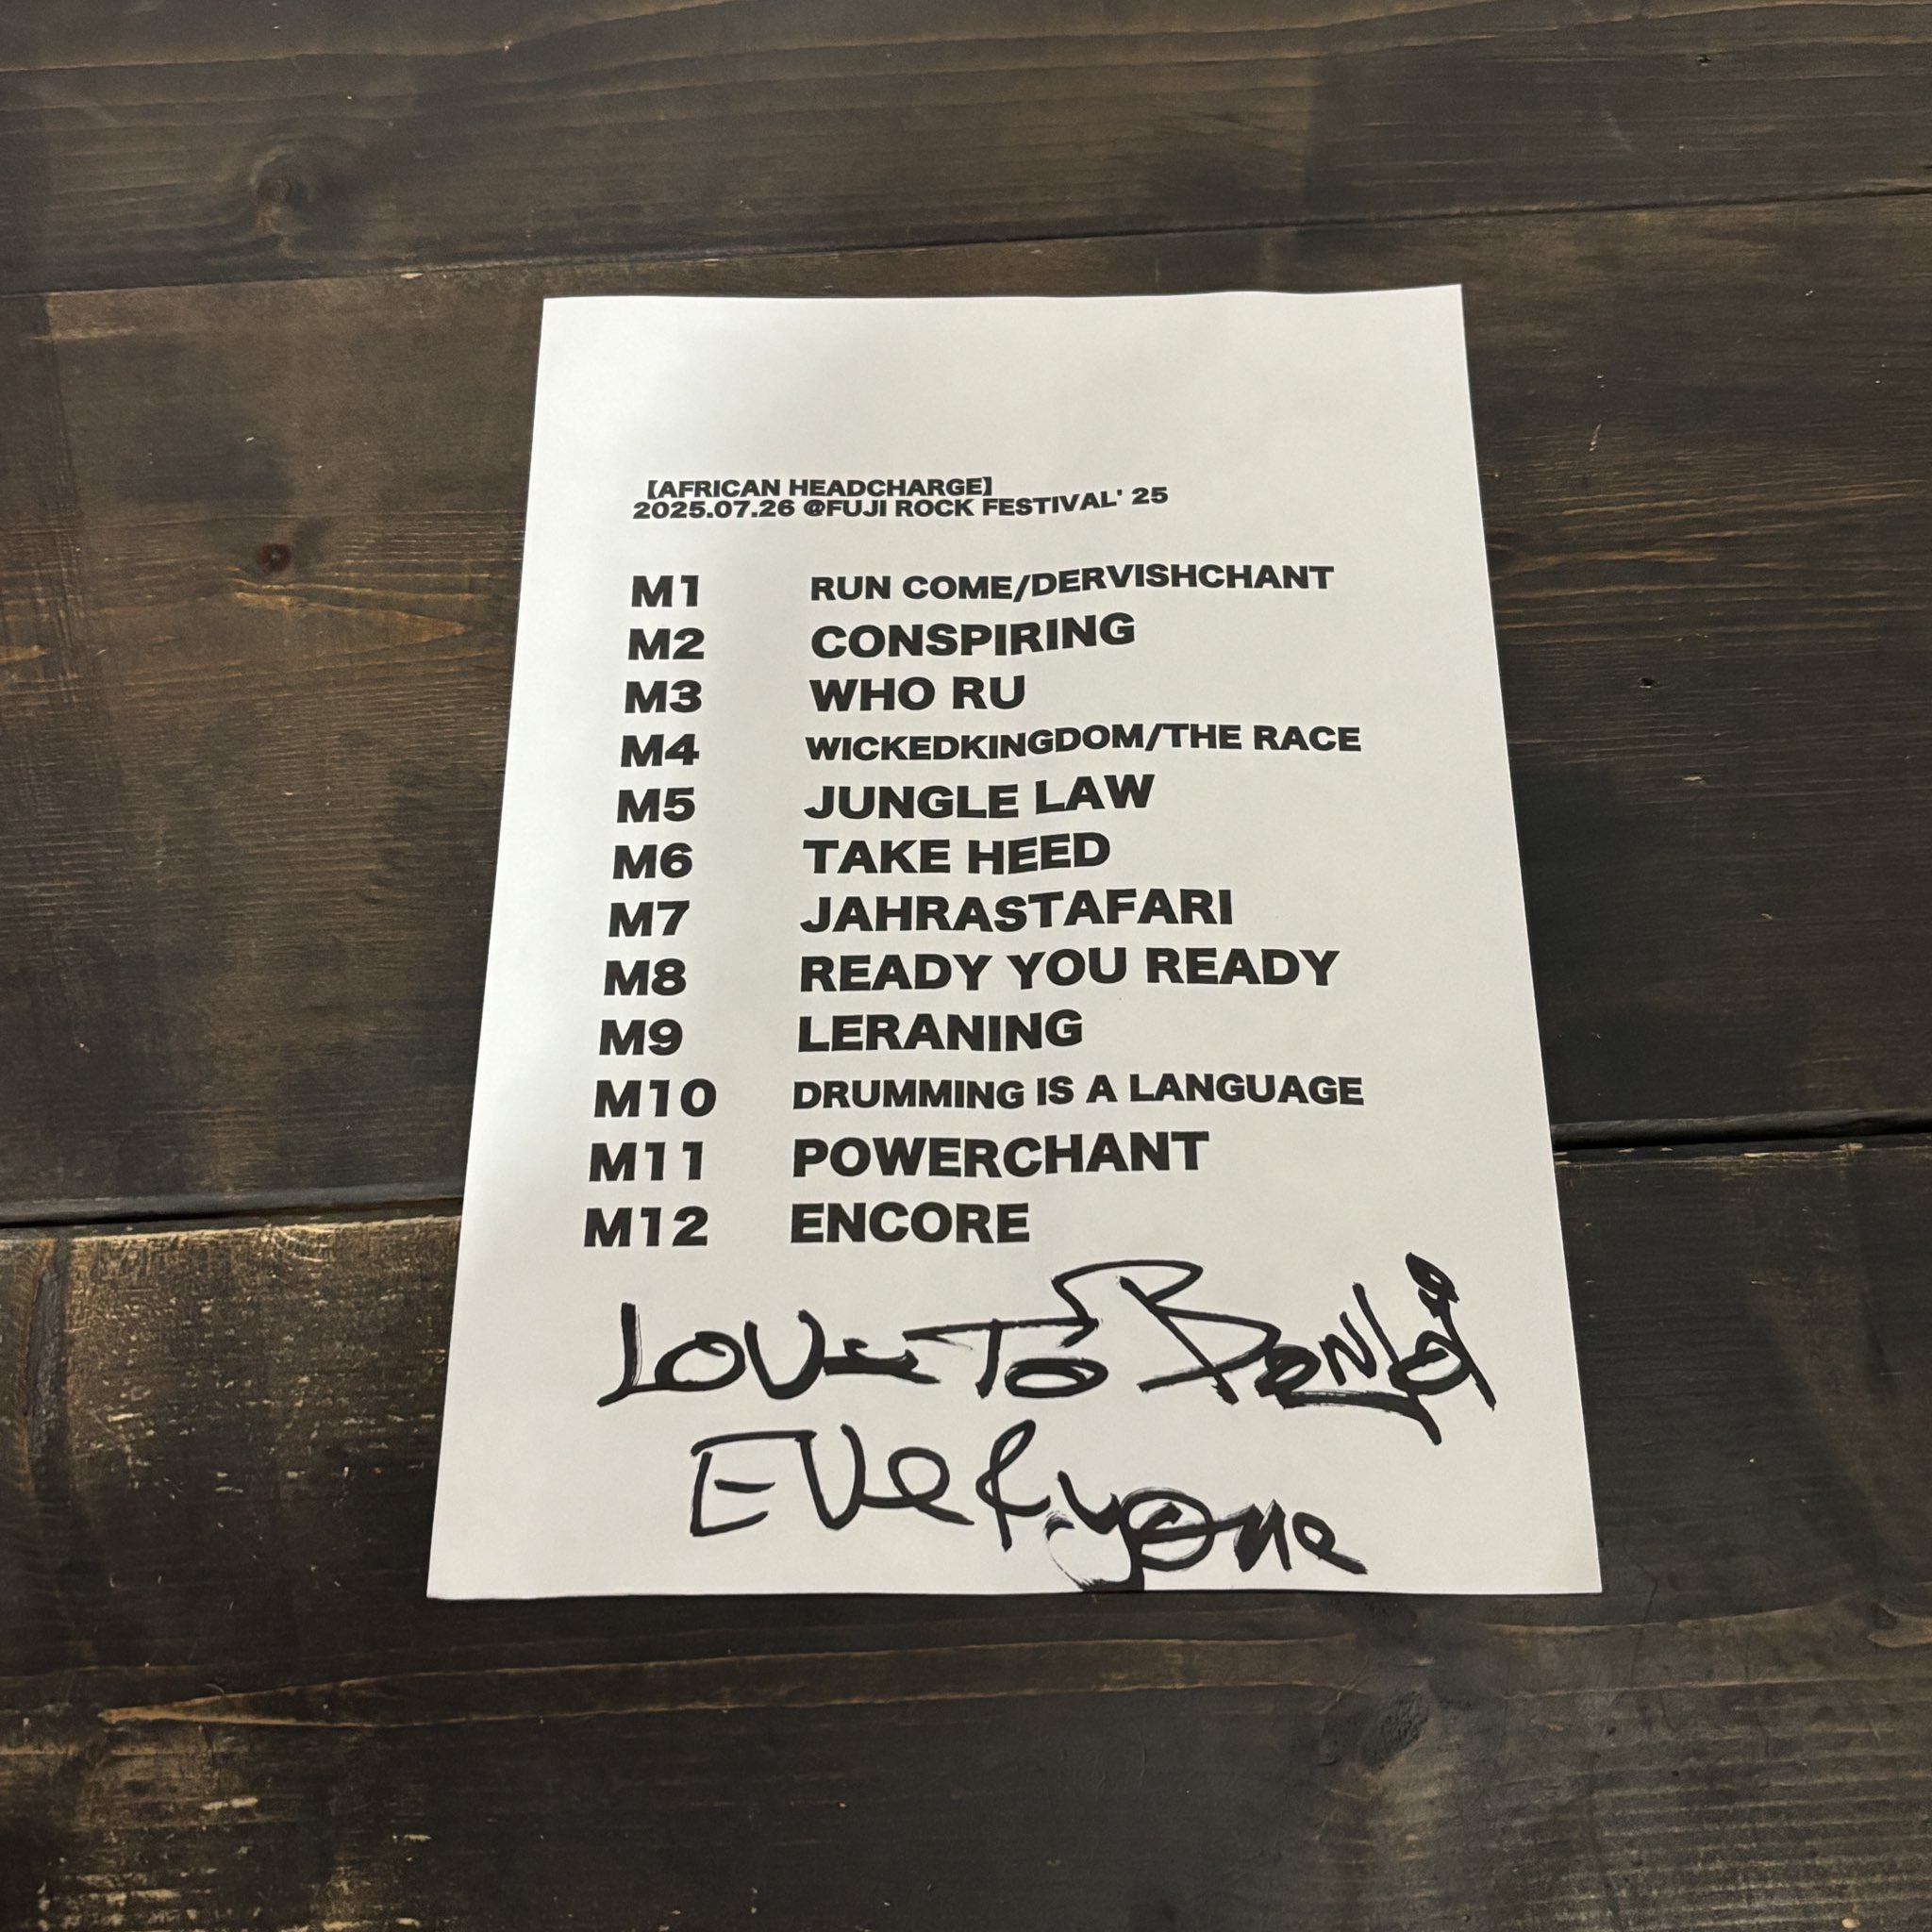 【AFRICAN HEADCHARGE】
2025.07.26 @FUJI ROCK FESTIVAL' 25
M1 RUN COME/DERVISHCHANT
M2 CONSPIRING
M3 WHO RU
M4 WICKEDKINGDOM/THE RACE
M5 JUNGLE LAW
M6 TAKE HEED
M7 JAHRASTAFARI
M8 READY YOU READY
M9 LERANING
M10 DRUMMING IS A LANGUAGE
M11 POWERCHANT
M12 ENCORE
Love To
Everyone